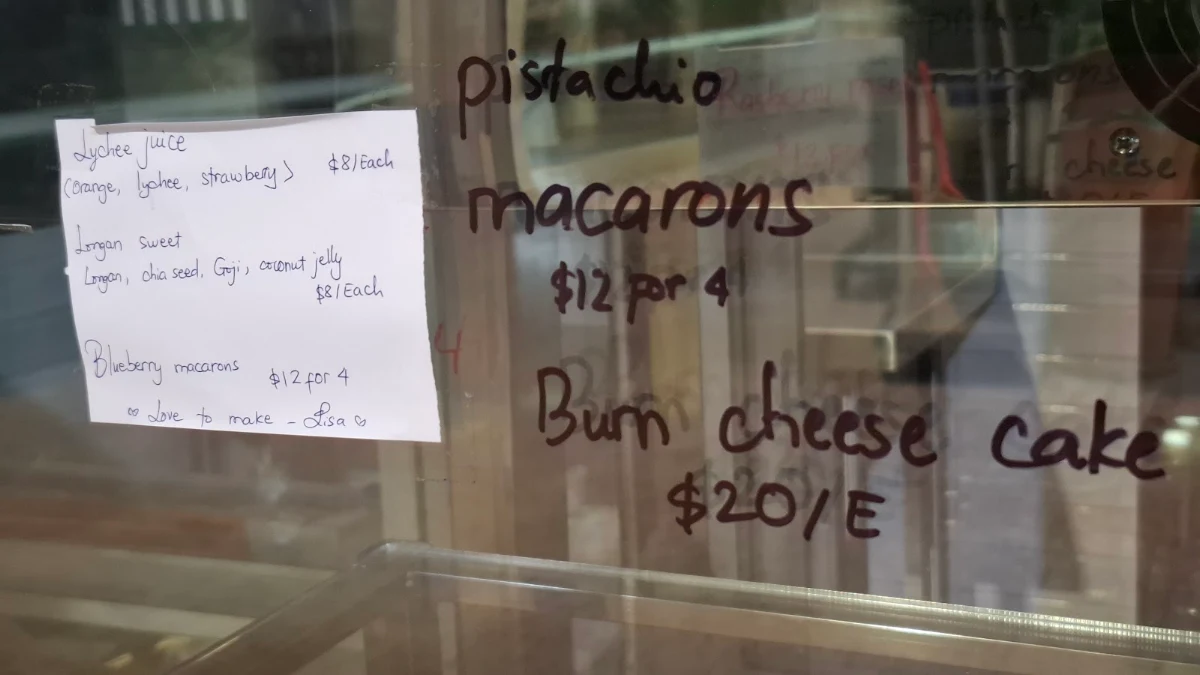 Lychee juice
(orange, lychee, strawbery) $8/Each
Longan sweet
Longan, chia seed, Goji, coconut jelly
$8/Each
Blueberry macarons $12 for 4
Love to make - Lisa
pistachio
macarons
$12 for 4
Burn cheese cake
$20/E
4
cheese